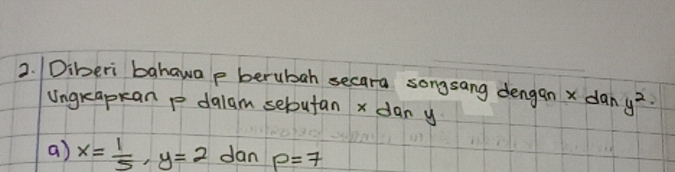 2. Diberi bahawa p berubah secara songsang dengan x dan y².
Ungkapkan p dalam sebutan x dan y
a) x = 1/5, y = 2 dan p = 7